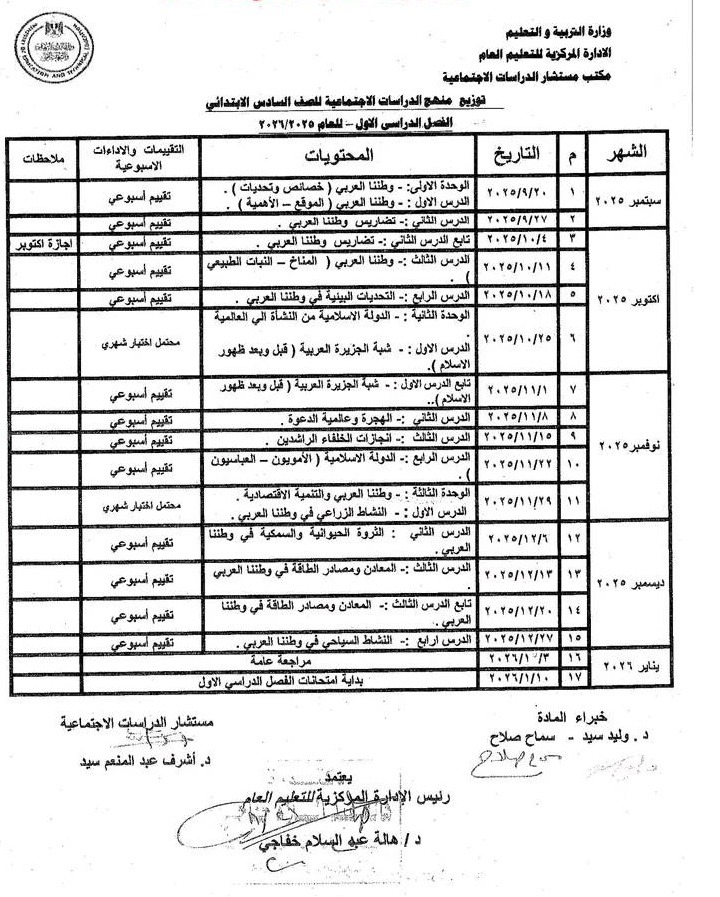 وزارة التربية و التعليم
الادارة المركزية للتعليم العام
مكتب مستشار الدراسات الاجتماعية
توزيع منهج الدراسات الاجتماعية للصف السادس الابتدائي
الفصل الدراسى الاول – للعام ٢٠٢٦/٢٠٢٥
الشهر م التاريخ المحتويات التقييمات والاداءات الاسبوعية ملاحظات
سبتمبر ٢٠٢٥
١ ٢٠٢٥/٩/٢٠ الوحدة الاولى: - وطننا العربي ( خصائص وتحديات ) . تقييم أسبوعي
الدرس الاول : - وطننا العربي ( الموقع – الأهمية ) .
٢ ٢٠٢٥/٩/٢٧ الدرس الثاني :- تضاريس وطننا العربي . تقييم أسبوعي
اكتوبر ٢٠٢٥
٣ ٢٠٢٥/١٠/٤ تابع الدرس الثاني :- تضاريس وطننا العربي . تقييم أسبوعي اجازة اكتوبر
٤ ٢٠٢٥/١٠/١١ الدرس الثالث :- وطننا العربي ( المناخ – النبات الطبيعي تقييم أسبوعي
) .
٥ ٢٠٢٥/١٠/١٨ الدرس الرابع :- التحديات البيئية في وطننا العربي . تقييم أسبوعي
٦ ٢٠٢٥/١٠/٢٥ الوحدة الثانية : - الدولة الاسلامية من النشأة الي العالمية محتمل اختبار شهري
.
الدرس الاول : - شبة الجزيرة العربية ( قبل وبعد ظهور
الاسلام ).
نوفمبر ٢٠٢٥
٧ ٢٠٢٥/١١/١ تابع الدرس الاول : - شبة الجزيرة العربية ( قبل وبعد ظهور تقييم أسبوعي
الاسلام )..
٨ ٢٠٢٥/١١/٨ الدرس الثاني :- الهجرة وعالمية الدعوة . تقييم أسبوعي
٩ ٢٠٢٥/١١/١٥ الدرس الثالث :- انجازات الخلفاء الراشدين . تقييم أسبوعي
١٠ ٢٠٢٥/١١/٢٢ الدرس الرابع :- الدولة الاسلامية ( الأمويون – العباسيون تقييم أسبوعي
) .
١١ ٢٠٢٥/١١/٢٩ الوحدة الثالثة : - وطننا العربي والتنمية الاقتصادية . محتمل اختبار شهري
الدرس الاول : - النشاط الزراعي في وطننا العربي .
ديسمبر ٢٠٢٥
١٢ ٢٠٢٥/١٢/٦ الدرس الثاني : الثروة الحيوانية والسمكية في وطننا تقييم أسبوعي
العربي .
١٣ ٢٠٢٥/١٢/١٣ الدرس الثالث :- المعادن ومصادر الطاقة في وطننا العربي تقييم أسبوعي
.
١٤ ٢٠٢٥/١٢/٢٠ تابع الدرس الثالث :- المعادن ومصادر الطاقة في وطننا تقييم أسبوعي
العربي .
١٥ ٢٠٢٥/١٢/٢٧ الدرس ارابع :- النشاط السياحي في وطننا العربي . تقييم أسبوعي
يناير ٢٠٢٦
١٦ ٢٠٢٦/١/٣ مراجعة عامة
١٧ ٢٠٢٦/١/١٠ بداية امتحانات الفصل الدراسي الاول
خبراء المادة
د . وليد سيد - سماح صلاح
مستشار الدراسات الاجتماعية
د. أشرف عبد المنعم سيد
يعتمد
رئيس الإدارة المركزية للتعليم العام
د/ هالة عبد السلام خفاجي